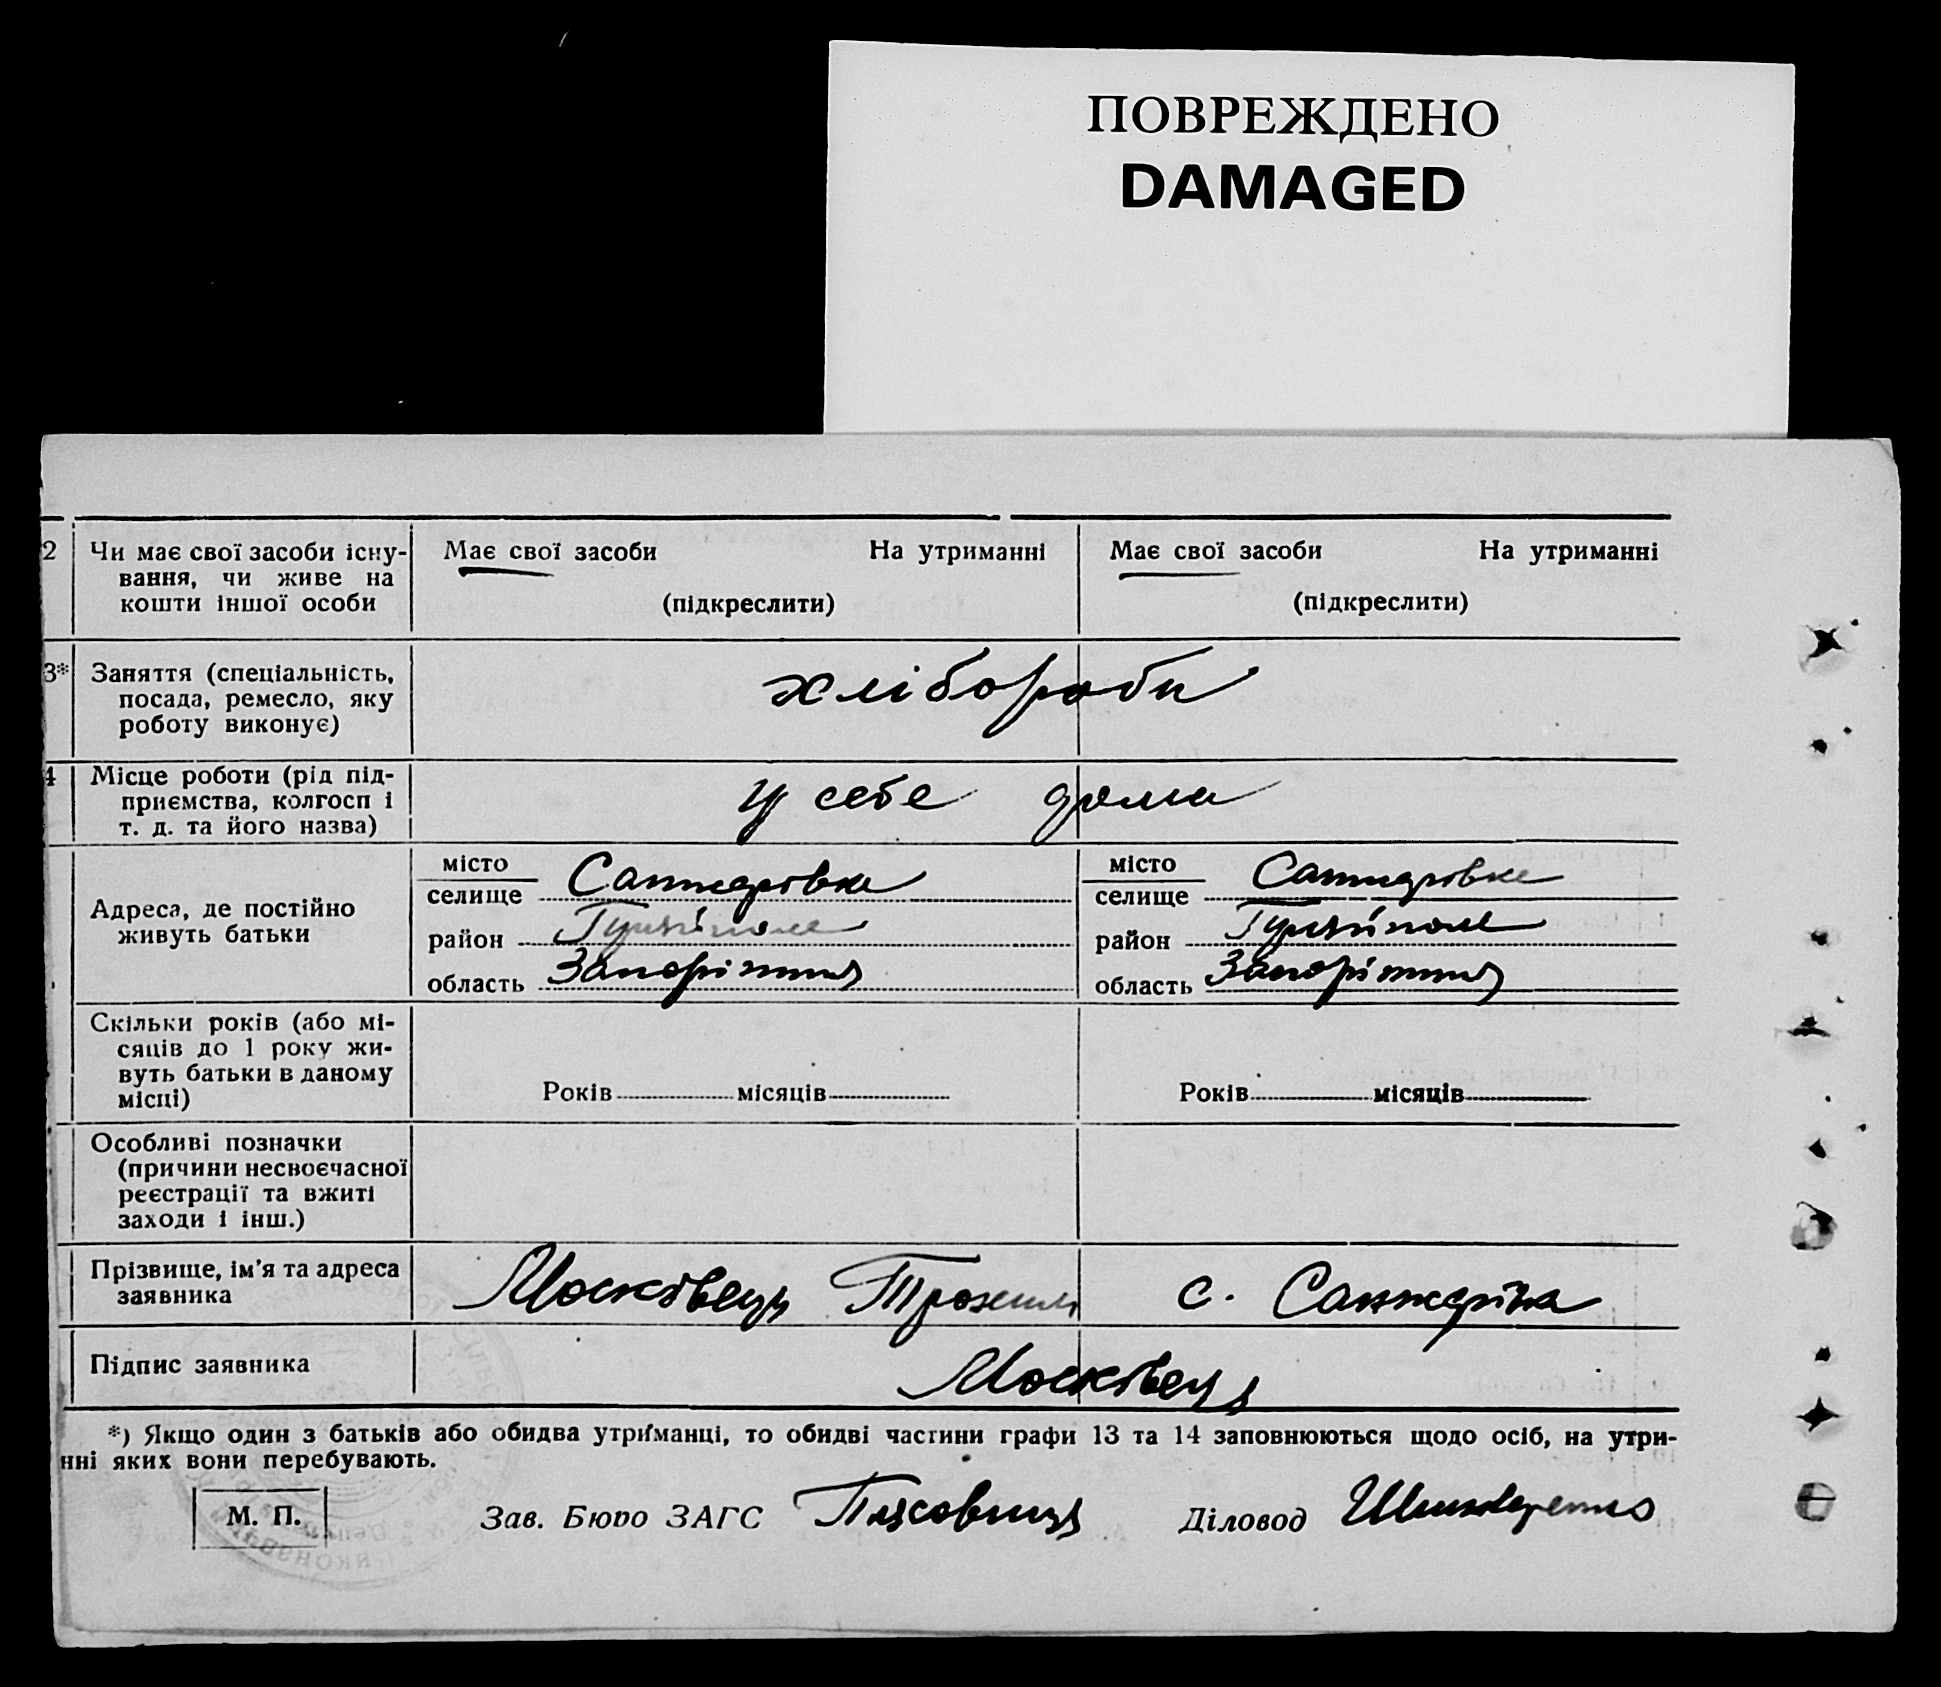 ПОВРЕЖДЕНО
DAMAGED
2 Чи має свої засоби існу-
вання, чи живе на
кошти іншої особи
Має свої засоби На утриманні
(підкреслити)
Має свої засоби На утриманні
(підкреслити)
3* Заняття (спеціальність,
посада, ремесло, яку
роботу виконує)
хлібороби
4 Місце роботи (рід під-
приємства, колгосп і
т. д. та його назва)
у себе дома
Адреса, де постійно
живуть батьки
місто
селище
район
область Запоріжжя
місто
селище
район
область Запоріжжя
Скільки років (або мі-
сяців до 1 року жи-
вуть батьки в даному
місці)
Років місяців
Років місяців
Особливі позначки
(причини несвоєчасної
реєстрації та вжиті
заходи і інш.)
Прізвище, ім'я та адреса
заявника
Московець с.
Підпис заявника
Московець
*) Якщо один з батьків або обидва утриманці, то обидві частини графи 13 та 14 заповнюються щодо осіб, на утри-
нні яких вони перебувають.
М. П.
Зав. Бюро ЗАГС
Діловод